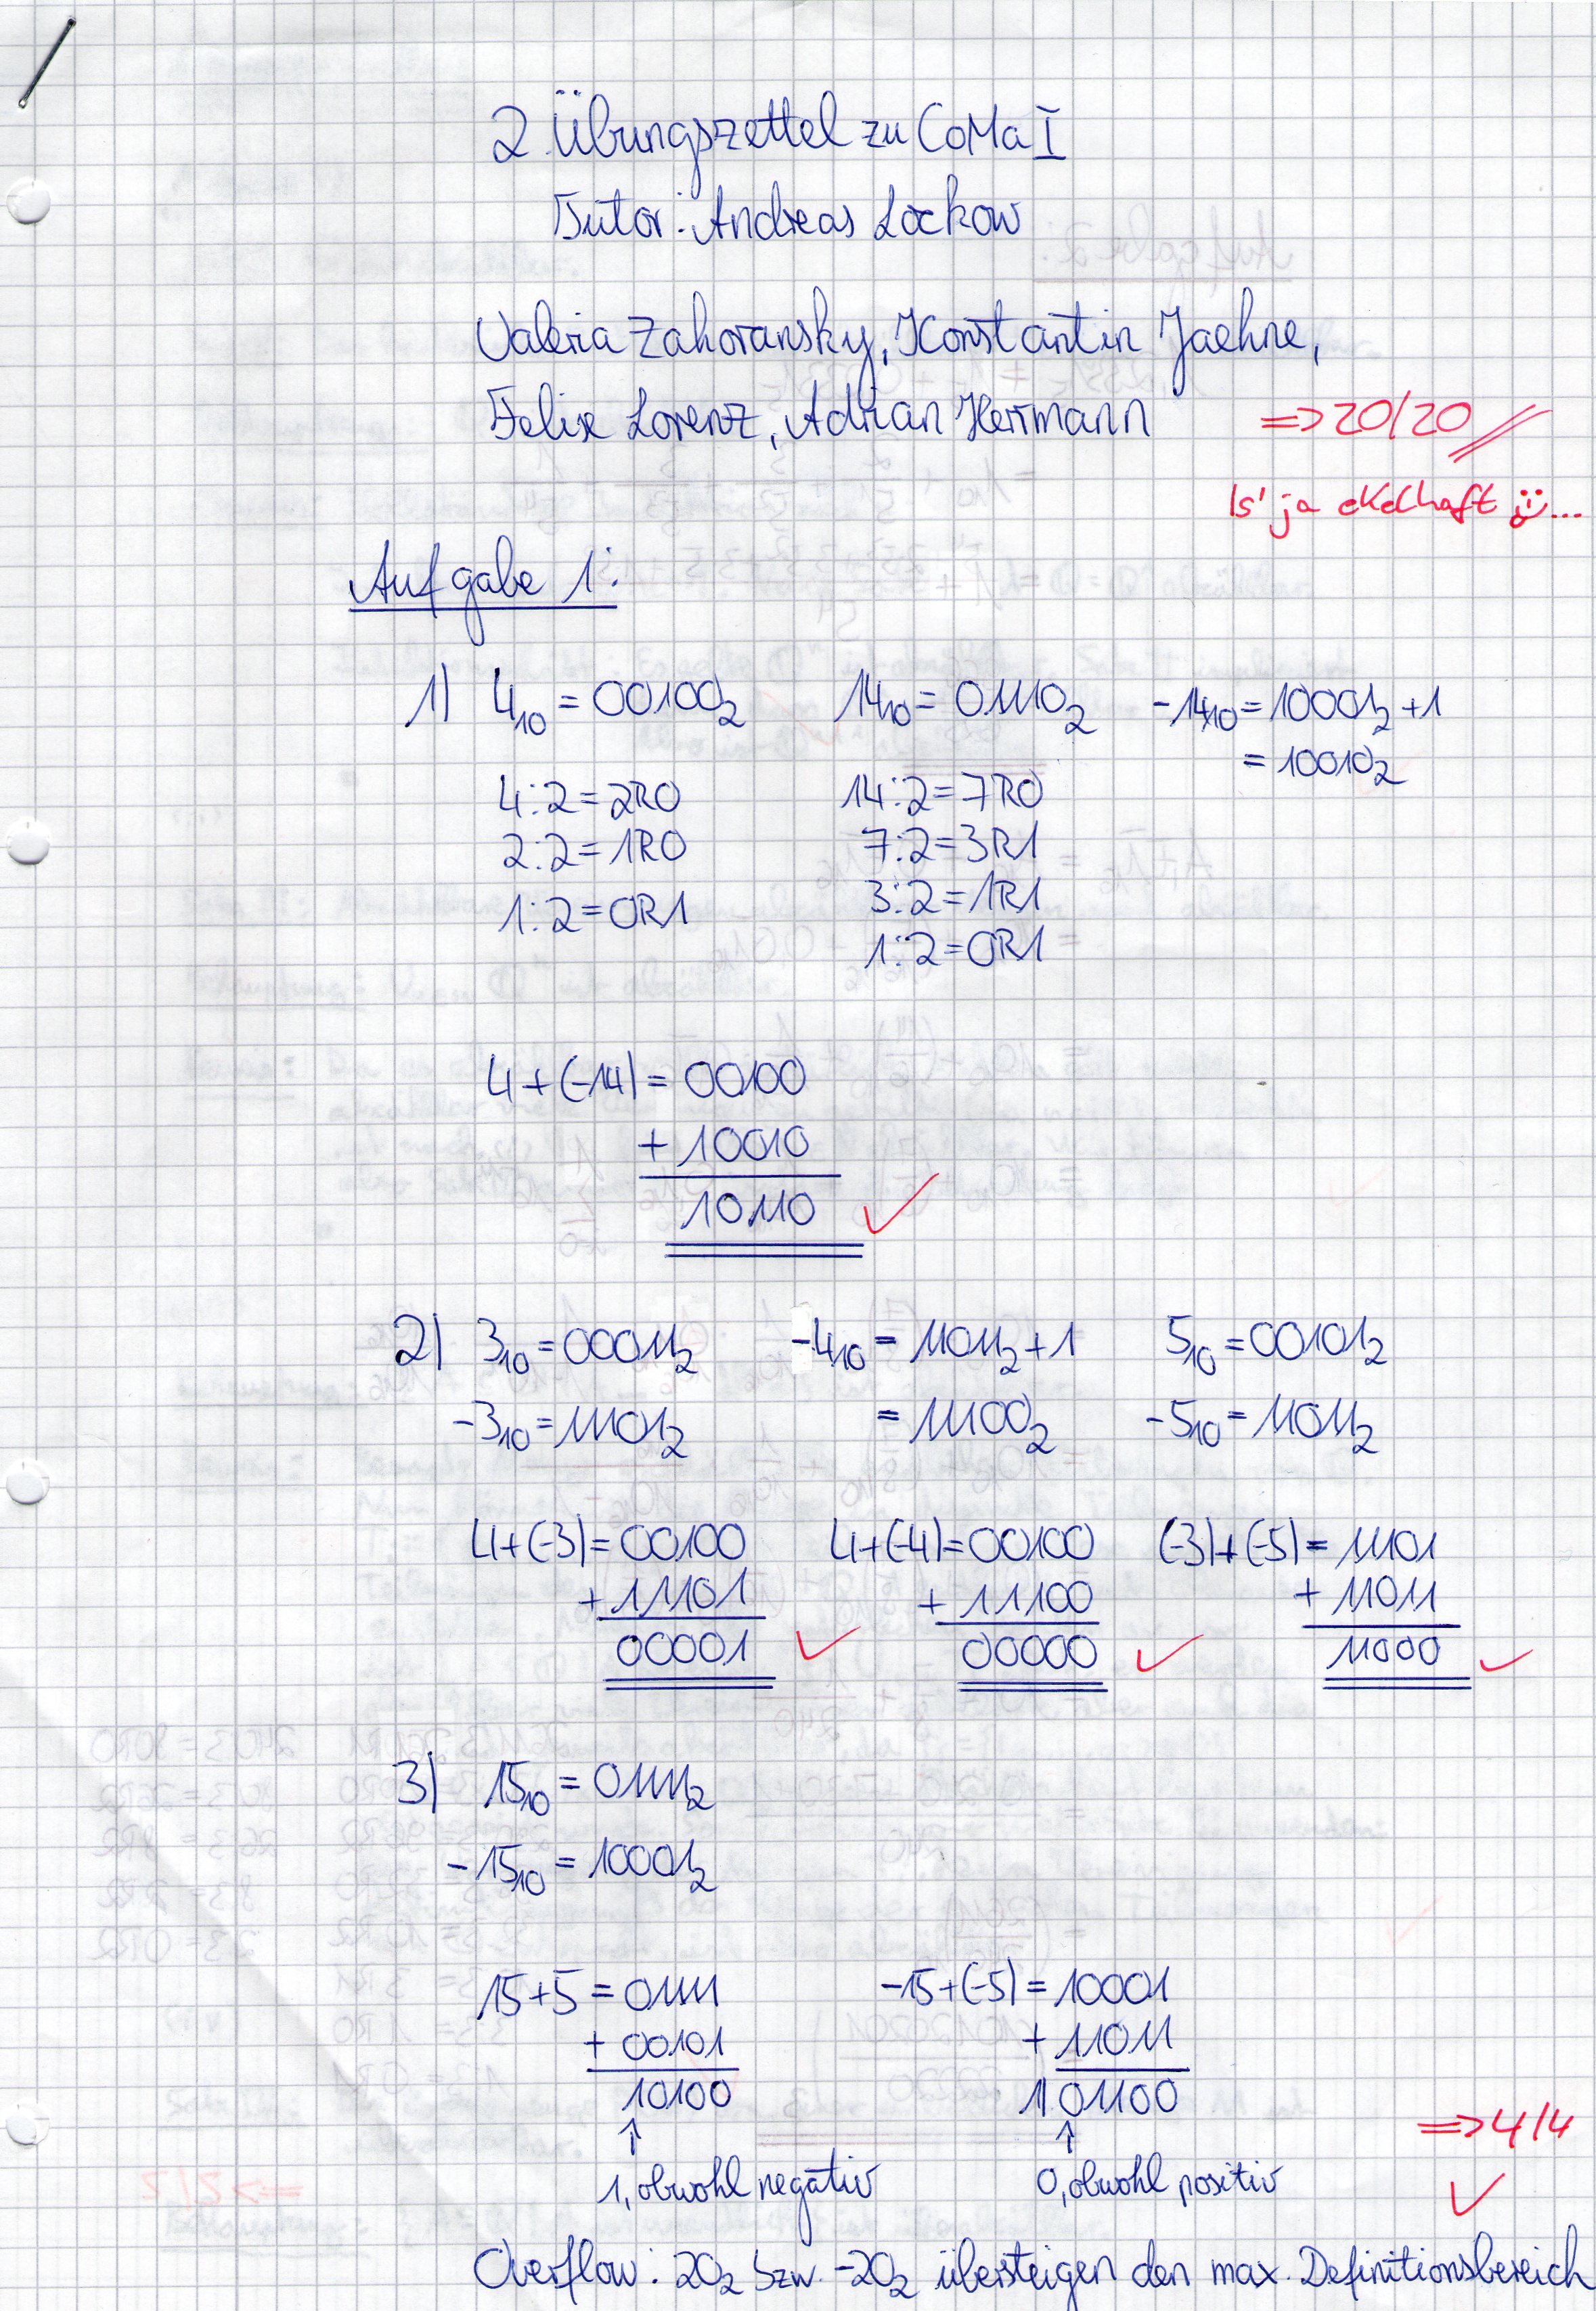 2. Übungszettel zu CoMa I
Tutor: Andreas Lockow
Valeria Zahoransky, Konstantin Jaehne,
Felix Lorenz, Adrian Herrmann
=> 20/20
Is' ja ekelhaft ...
Aufgabe 1:
1) 4₁₀ = 00100₂ 14₁₀ = 01110₂ -14₁₀ = 10001₂ + 1
= 10010₂
4:2=2R0 14:2=7R0
2:2=1R0 7:2=3R1
1:2=0R1 3:2=1R1
1:2=0R1
4+(-14) = 00100
+ 10010
10110 ✓
2) 3₁₀ = 00011₂ -4₁₀ = 11011₂ + 1 5₁₀ = 00101₂
-3₁₀ = 11101₂ = 11100₂ -5₁₀ = 11011₂
4+(-3) = 00100 4+(-4) = 00100 (-3)+(-5) = 11101
+ 11101 + 11100 + 11011
00001 ✓ 00000 ✓ 11000 ✓
3) 15₁₀ = 01111₂
-15₁₀ = 10001₂
15+5 = 01111 -15+(-5) = 10001
+ 00101 + 11011
10100 1|01100
↑ ↑
1, obwohl negativ 0, obwohl positiv
=> 4/4
✓
Overflow: 20₂ bzw. -20₂ übersteigen den max. Definitionsbereich